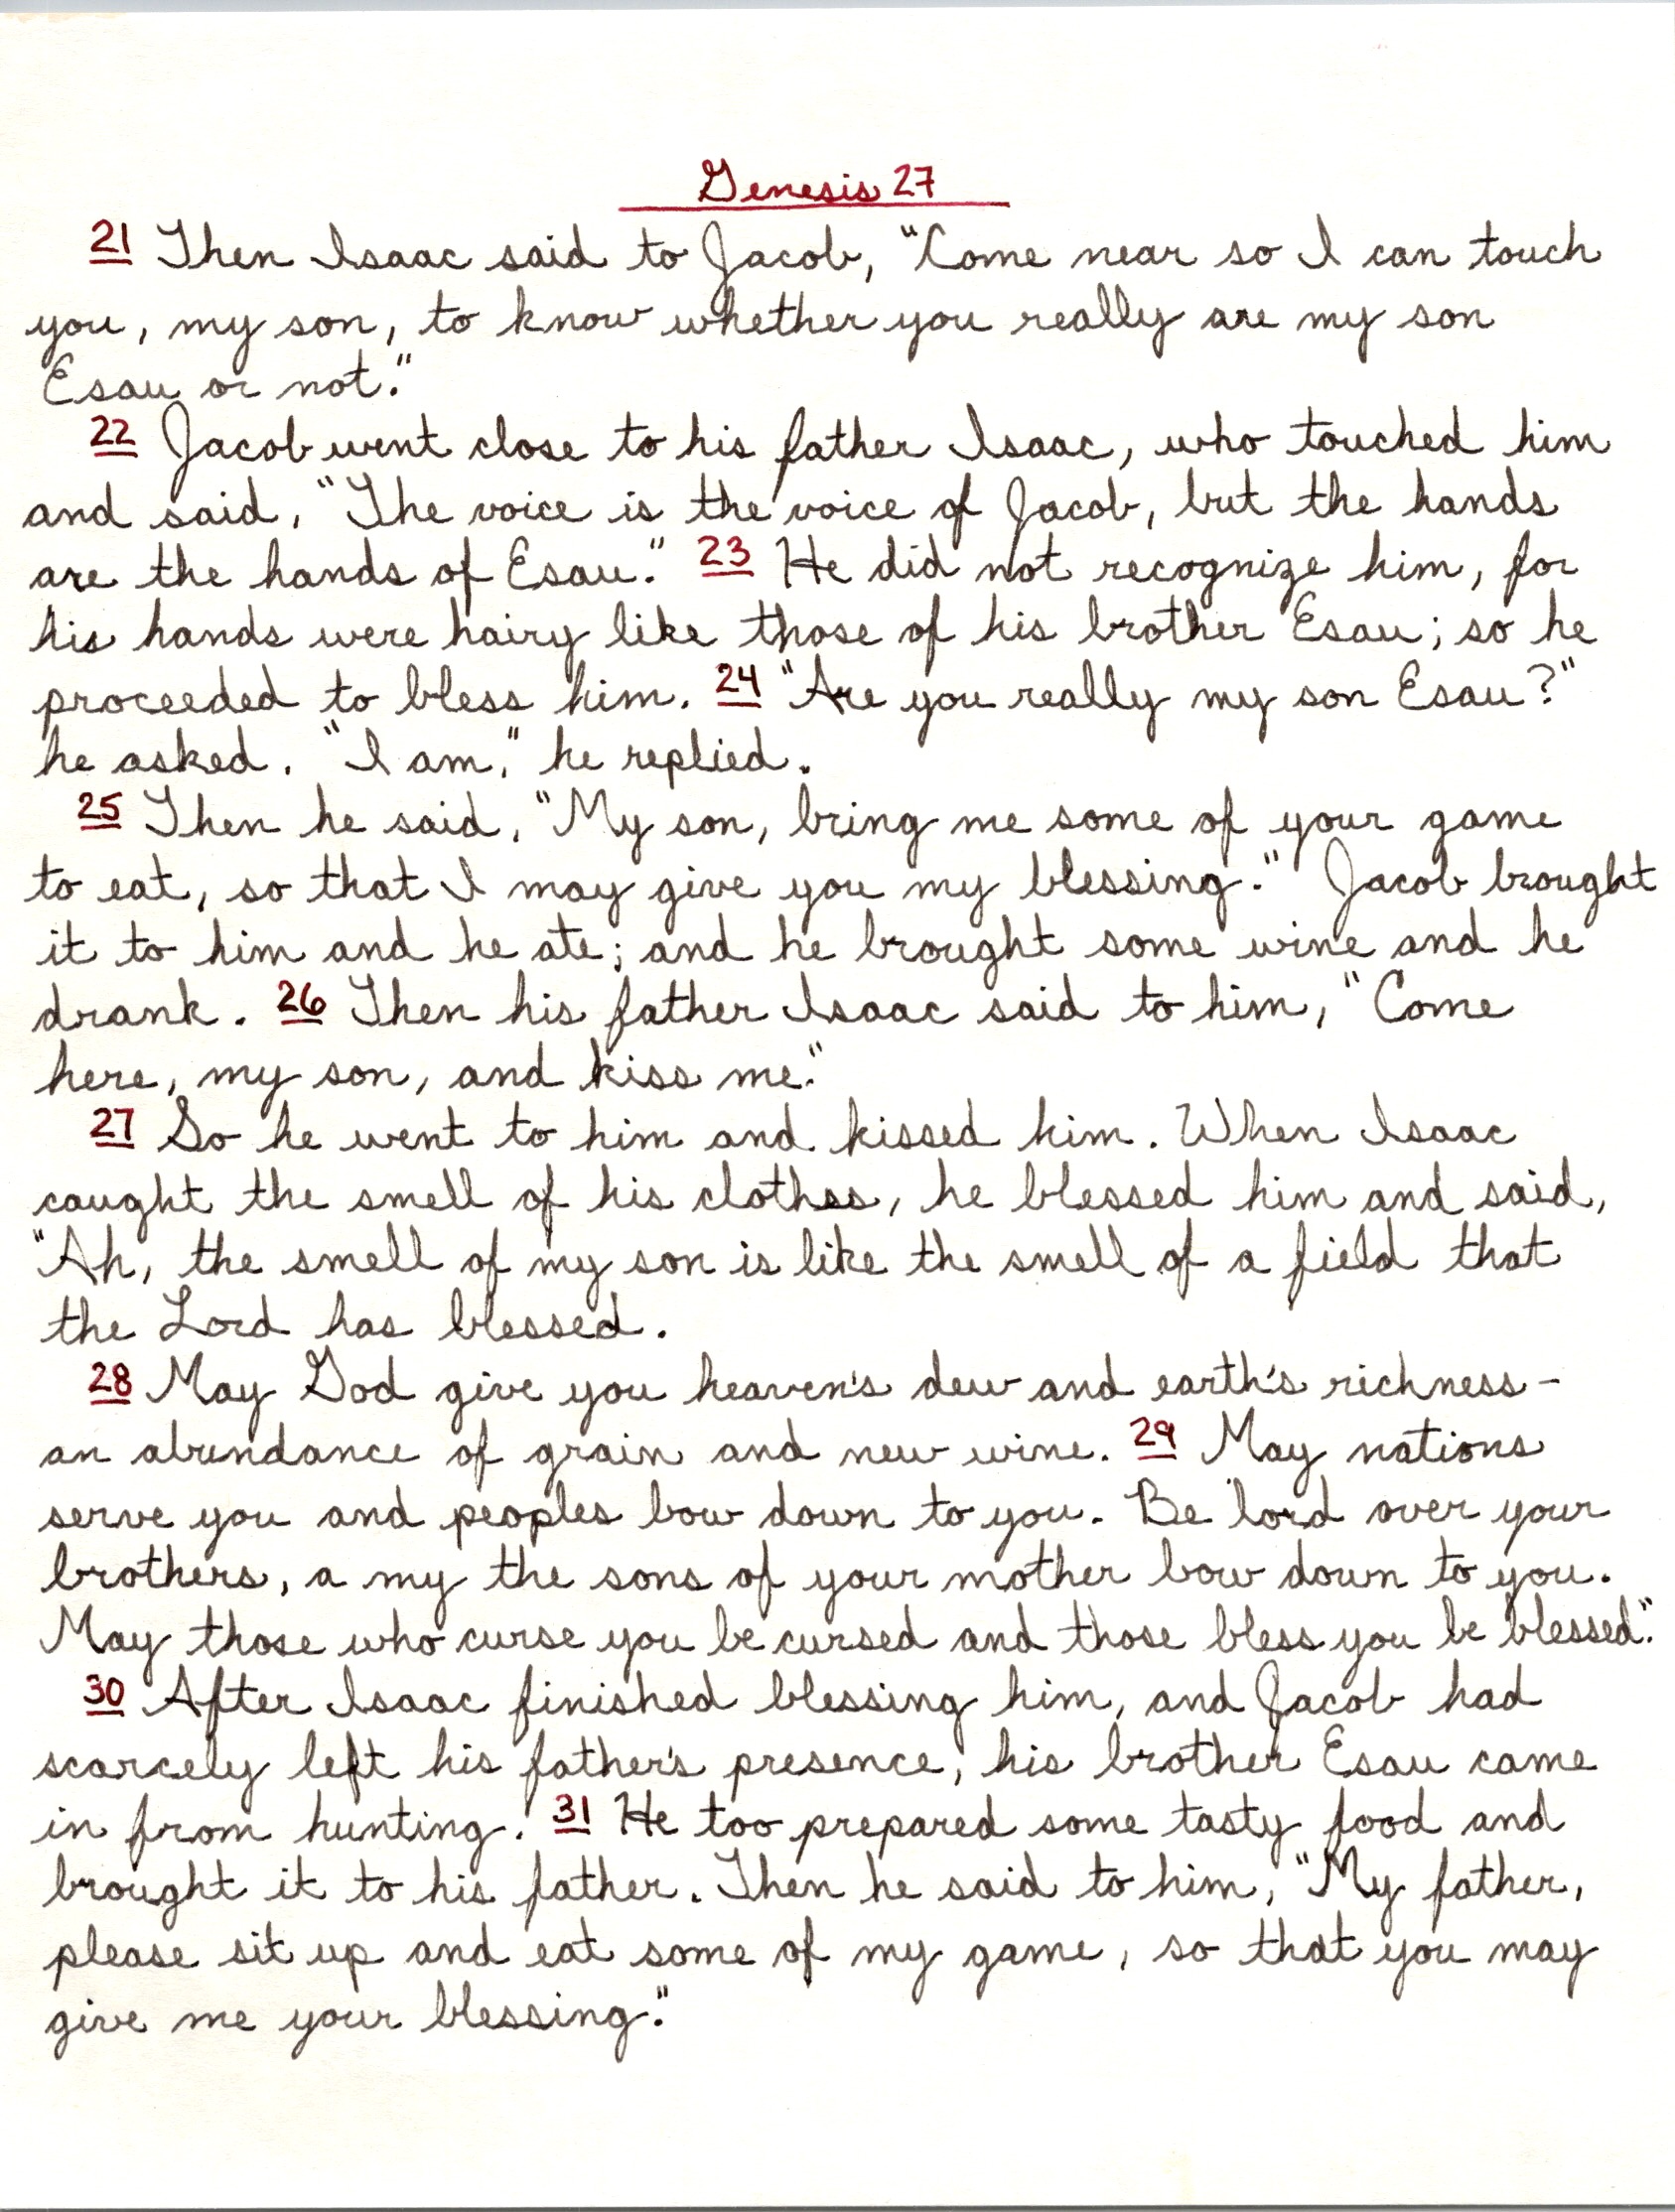 Genesis 27
21 Then Isaac said to Jacob, "Come near so I can touch
you, my son, to know whether you really are my son
Esau or not."
22 Jacob went close to his father Isaac, who touched him
and said, "The voice is the voice of Jacob, but the hands
are the hands of Esau." 23 He did not recognize him, for
his hands were hairy like those of his brother Esau; so he
proceeded to bless him. 24 "Are you really my son Esau?"
he asked. "I am," he replied.
25 Then he said, "My son, bring me some of your game
to eat, so that I may give you my blessing." Jacob brought
it to him and he ate; and he brought some wine and he
drank. 26 Then his father Isaac said to him, "Come
here, my son, and kiss me."
27 So he went to him and kissed him. When Isaac
caught the smell of his clothes, he blessed him and said,
"Ah, the smell of my son is like the smell of a field that
the Lord has blessed.
28 May God give you heaven's dew and earth's richness-
an abundance of grain and new wine. 29 May nations
serve you and peoples bow down to you. Be lord over your
brothers, a my the sons of your mother bow down to you.
May those who curse you be cursed and those bless you be blessed."
30 After Isaac finished blessing him, and Jacob had
scarcely left his father's presence, his brother Esau came
in from hunting. 31 He too prepared some tasty food and
brought it to his father. Then he said to him, "My father,
please sit up and eat some of my game, so that you may
give me your blessing."